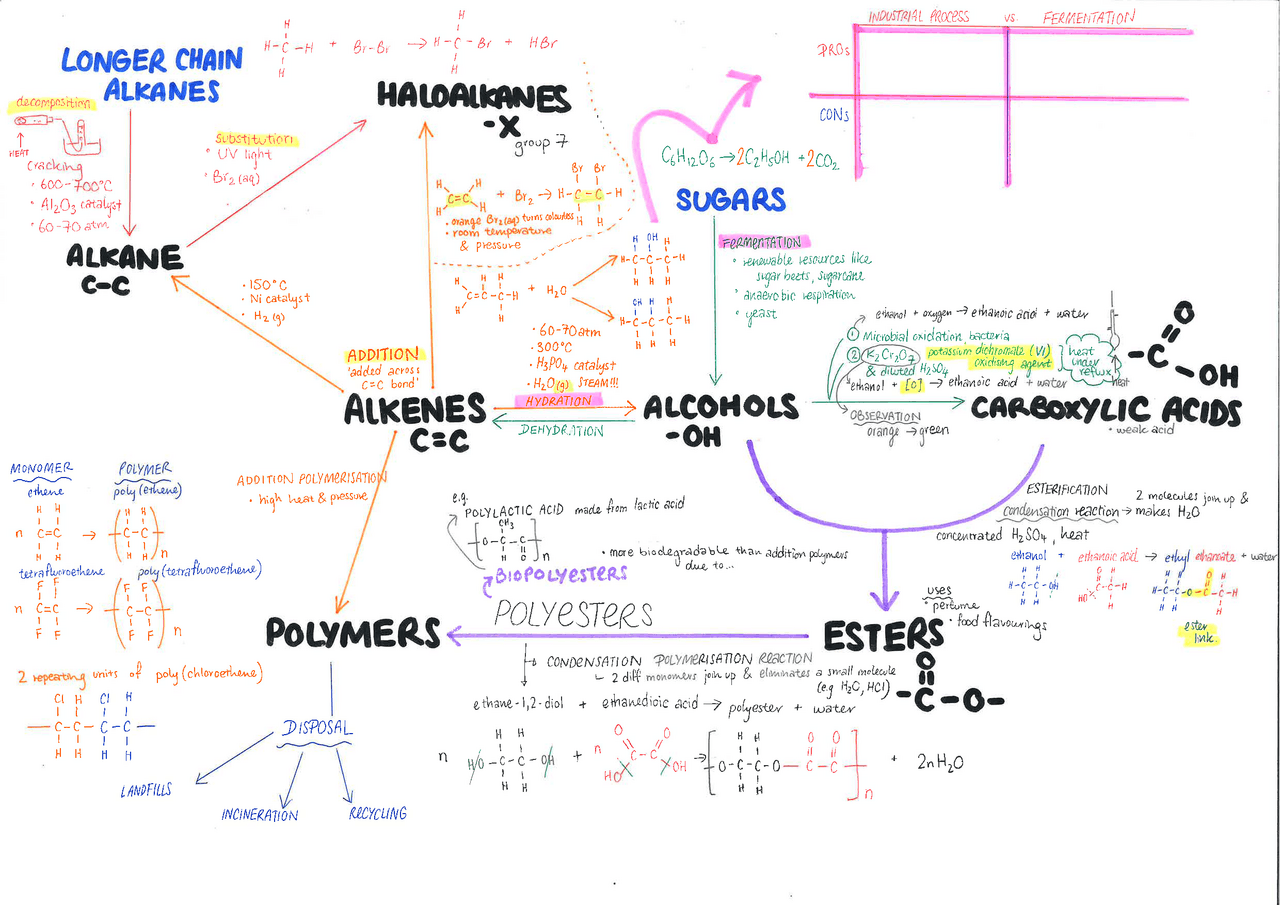 INDUSTRIAL PROCESS vs. FERMENTATION
PROs
CONs
LONGER CHAIN
ALKANES
decomposition
HEAT
cracking
• 600-700°C
• Al2O3 catalyst
• 60-70 atm
H
H-C-H + Br-Br → H-C-Br + HBr
H
HALOALKANES
-X
group 7
substitution
• UV light
• Br2 (aq)
ALKANE
C-C
• 150°C
• Ni catalyst
• H2 (g)
C=C + Br2 → H-C-C-H
Br Br
H H
• orange Br2(aq) turns colourless
• room temperature
& pressure
C=C-C-H + H2O
H OH H
H-C-C-C-H
H H H
OH H H
H-C-C-C-H
H H H
• 60-70atm
• 300°C
• H3PO4 catalyst
• H2O(g) STEAM!!!
HYDRATION
DEHYDRATION
ADDITION
'added across
C=C bond'
ALKENES
C=C
C6H12O6 → 2C2H5OH + 2CO2
SUGARS
FERMENTATION
• renewable resources like
sugar beets, sugarcane
• anaerobic respiration
• yeast
ALCOHOLS
-OH
ethanol + oxygen → ethanoic acid + water
① Microbial oxidation, bacteria
② K2Cr2O7 potassium dichromate (VI)
oxidising agent
& diluted H2SO4
ethanol + [O] → ethanoic acid + water
OBSERVATION
orange → green
heat
under
reflux
heat
O
-C
OH
CARBOXYLIC ACIDS
• weak acid
ESTERIFICATION
condensation reaction → 2 molecules join up &
makes H2O
concentrated H2SO4, heat
ethanol + ethanoic acid → ethyl ethanoate + water
H H
H-C-C-OH
H H
O H
HO C-C-H
H
H H O H
H-C-C-O-C-C-H
H H H
ester
link
uses
• perfume
• food flavourings
ESTERS
O
-C-O-
MONOMER POLYMER
ethene poly(ethene)
H H H H
n C=C → C-C
H H H H n
tetrafluoroethene poly(tetrafluoroethene)
F F F F
n C=C → C-C
F F F F n
2 repeating units of poly(chloroethene)
Cl H Cl H
-C-C-C-C-
H H H H
ADDITION POLYMERISATION
• high heat & pressure
POLYMERS
DISPOSAL
LANDFILLS
INCINERATION
RECYCLING
e.g.
POLYLACTIC ACID made from lactic acid
CH3
O-C-C
H O n
BIOPOLYESTERS
• more biodegradable than addition polymers
due to...
POLYESTERS
CONDENSATION POLYMERISATION REACTION
2 diff monomers join up & eliminates a small molecule
(e.g H2O, HCl)
ethane-1,2-diol + ethanedioic acid → polyester + water
H H
n HO-C-C-OH + n
H H
O O
C-C
HO OH
H H O O
-O-C-C-O-C-C-
H H n
+ 2nH2O